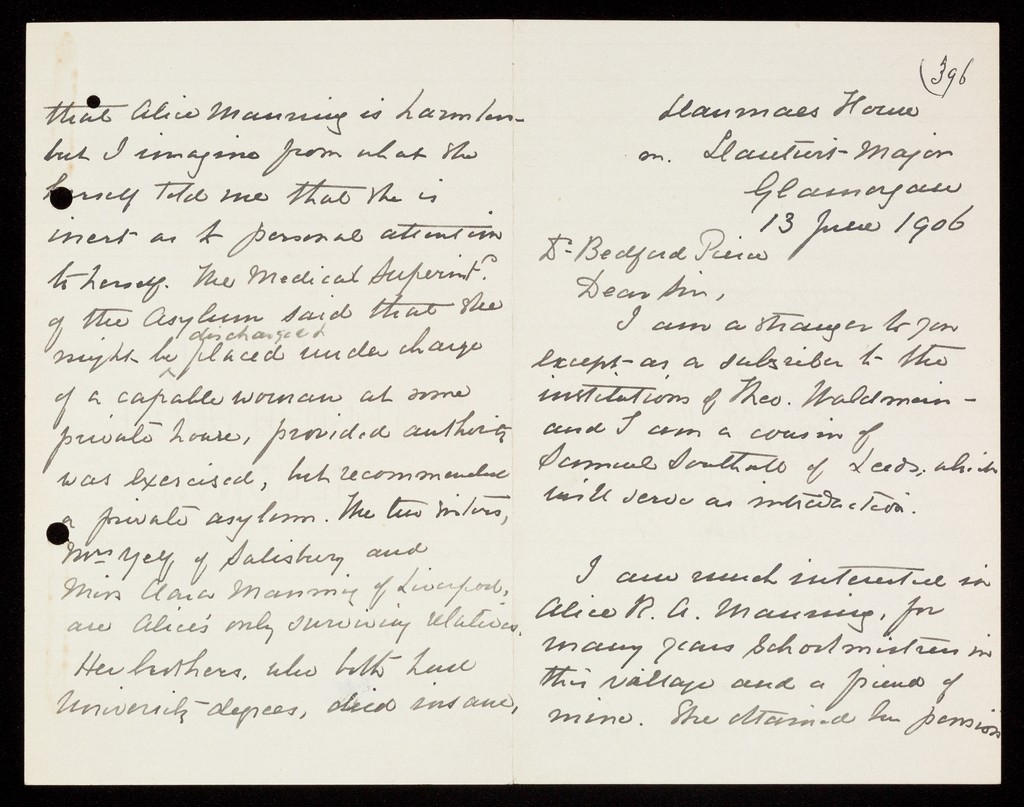 (396
Llanmaes House
nr. Llantwit Major
Glamorgan
13 June 1906
Dr Bedford Pierce
Dear Sir,
I am a stranger to you
except as a subscriber to the
institutions of Theo. Waldmeier -
and I am a cousin of
Samuel Southall of Leeds, which
will serve as introduction.
I am much interested in
Alice R. A. Manning, for
many years Schoolmistress in
this village and a friend of
mine. She obtained her pension
that Alice Manning is harmless
but I imagine from what she
herself told me that she is
inert as to personal attention
to herself. The Medical Superintt.
of the Asylum said that she
might be discharged & placed under charge
of a capable woman at some
private house, provided authority
was exercised, but recommended
a private asylum. The two sisters,
Mrs Yelf of Salisbury and
Miss Clara Manning of Liverpool,
are Alice's only surviving relatives.
Her brothers, who both had
University degrees, died insane,